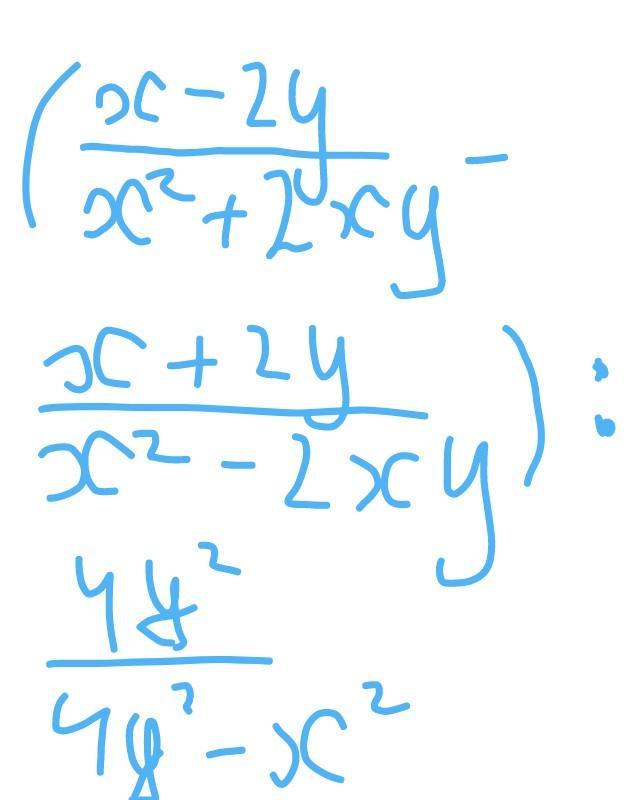 (x - 2y / x² + 2xy -
x + 2y / x² - 2xy) :
4y² / 4y² - x²